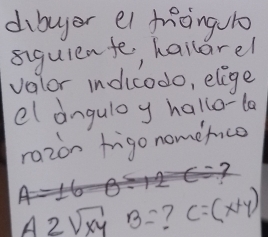 dibujar el triángulo
siguiente, hallar el
valor indicado, elige
el ángulo y hallar la
razón trigonométrica
A=16 B=12 C=?
A 2√xy B=? C=(x+y)